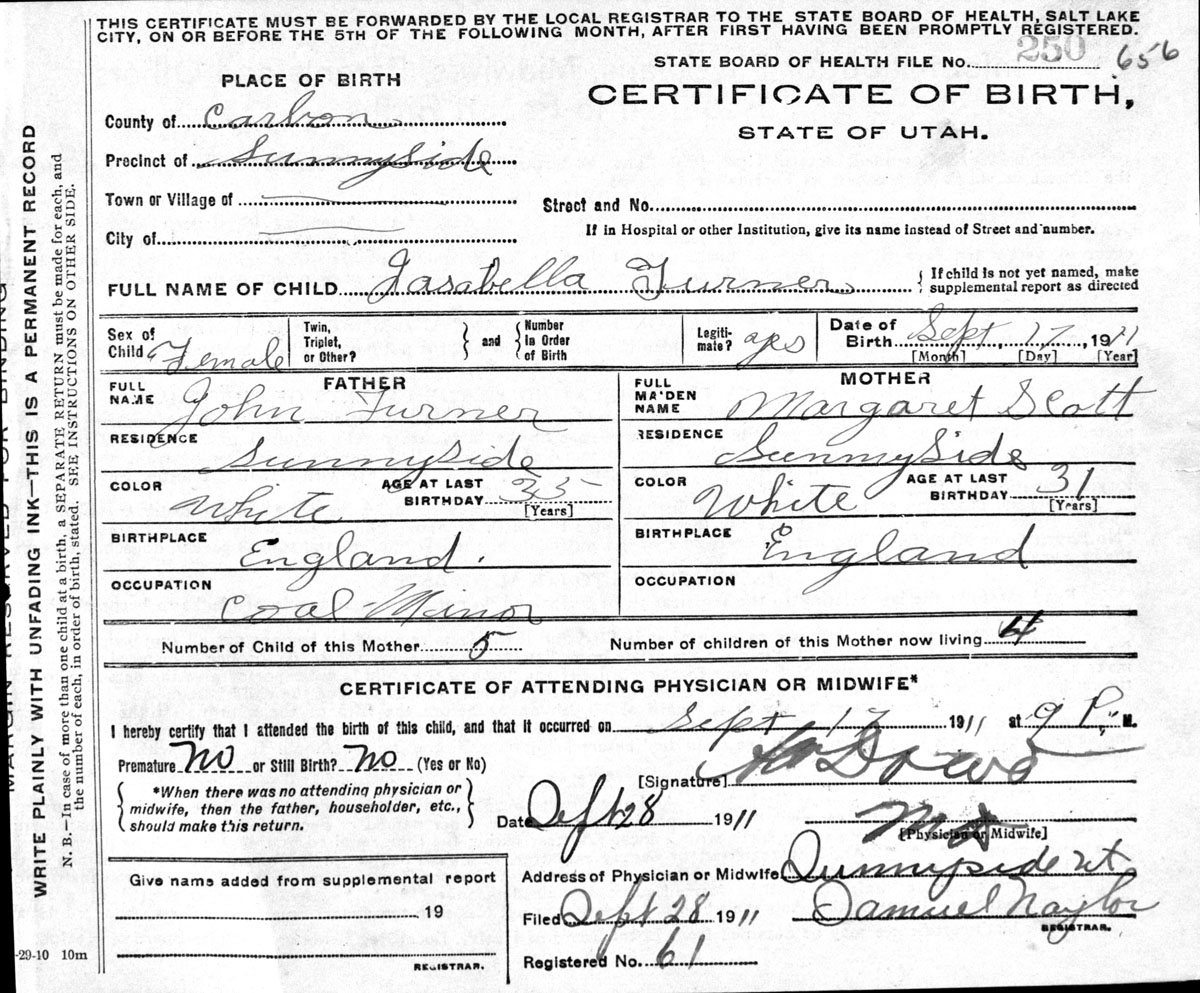 THIS CERTIFICATE MUST BE FORWARDED BY THE LOCAL REGISTRAR TO THE STATE BOARD OF HEALTH, SALT LAKE
CITY, ON OR BEFORE THE 5TH OF THE FOLLOWING MONTH, AFTER FIRST HAVING BEEN PROMPTLY REGISTERED.
STATE BOARD OF HEALTH FILE No. 250 656
PLACE OF BIRTH
CERTIFICATE OF BIRTH,
STATE OF UTAH.
County of Carbon
Precinct of Sunnyside
Town or Village of
Street and No.
City of
If in Hospital or other Institution, give its name instead of Street and number.
FULL NAME OF CHILD Jasabella Turner
If child is not yet named, make
supplemental report as directed
Sex of Child Female
Twin, Triplet, or Other?
and
Number in Order of Birth
Legitimate? yes
Date of Birth Sept, 17, 1911
[Month] [Day] [Year]
FATHER
MOTHER
FULL NAME John Turner
FULL MAIDEN NAME Margaret Scott
RESIDENCE Sunnyside
RESIDENCE SunnySide
COLOR White AGE AT LAST BIRTHDAY 35 [Years]
COLOR White AGE AT LAST BIRTHDAY 31 [Years]
BIRTHPLACE England.
BIRTHPLACE England
OCCUPATION Coal Minor
OCCUPATION
Number of Child of this Mother 5
Number of children of this Mother now living 4
CERTIFICATE OF ATTENDING PHYSICIAN OR MIDWIFE*
I hereby certify that I attended the birth of this child, and that it occurred on Sept 17 1911 at 9 P. M.
Premature No or Still Birth? No (Yes or No)
[Signature] Dowd
*When there was no attending physician or
midwife, then the father, householder, etc.,
should make this return.
Date Sept 28 1911
MD
[Physician or Midwife]
Give name added from supplemental report
19
REGISTRAR.
Address of Physician or Midwife Sunnyside Ut
Filed Sept 28 1911 Samuel Naylor
REGISTRAR.
Registered No. 61
-29-10 10m
MARGIN RESERVED FOR BINDING
WRITE PLAINLY WITH UNFADING INK—THIS IS A PERMANENT RECORD
N. B.—In case of more than one child at a birth, a SEPARATE RETURN must be made for each, and
the number of each, in order of birth, stated. SEE INSTRUCTIONS ON OTHER SIDE.